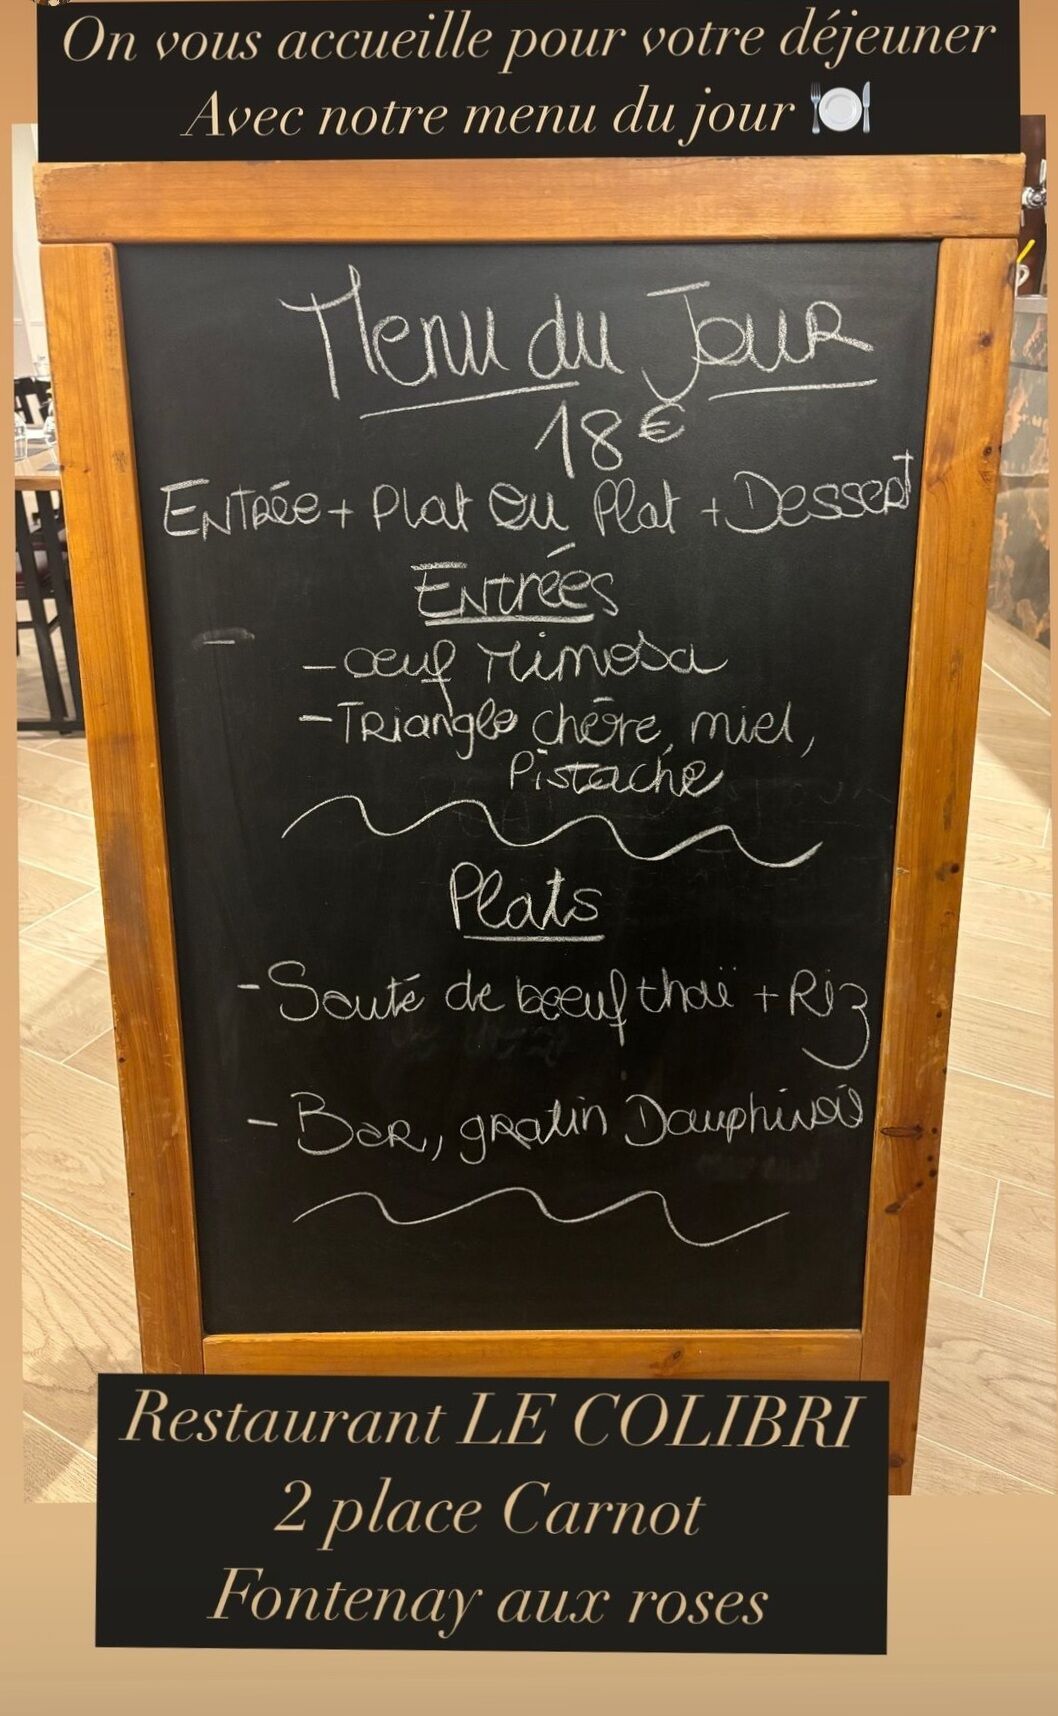 On vous accueille pour votre déjeuner
Avec notre menu du jour 🍽️
Menu du Jour
18€
Entrée + Plat ou Plat + Dessert
Entrées
- œuf Mimosa
- Triangle chèvre, miel,
Pistache
Plats
- Sauté de boeuf thaï + Riz
- Bar, gratin Dauphinois
Restaurant LE COLIBRI
2 place Carnot
Fontenay aux roses